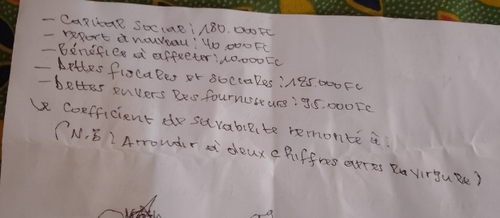 - Capital social : 180.000FC
- report à nouveau : 40.000FC
- Bénéfice à affecter : 10.000FC
- Dettes fiscales et sociales : 185.000FC
- Dettes envers les fournisseurs : 95.000FC
Le coefficient de solvabilité remonté à :
(N.B : Arrondir à deux chiffres après la virgule)